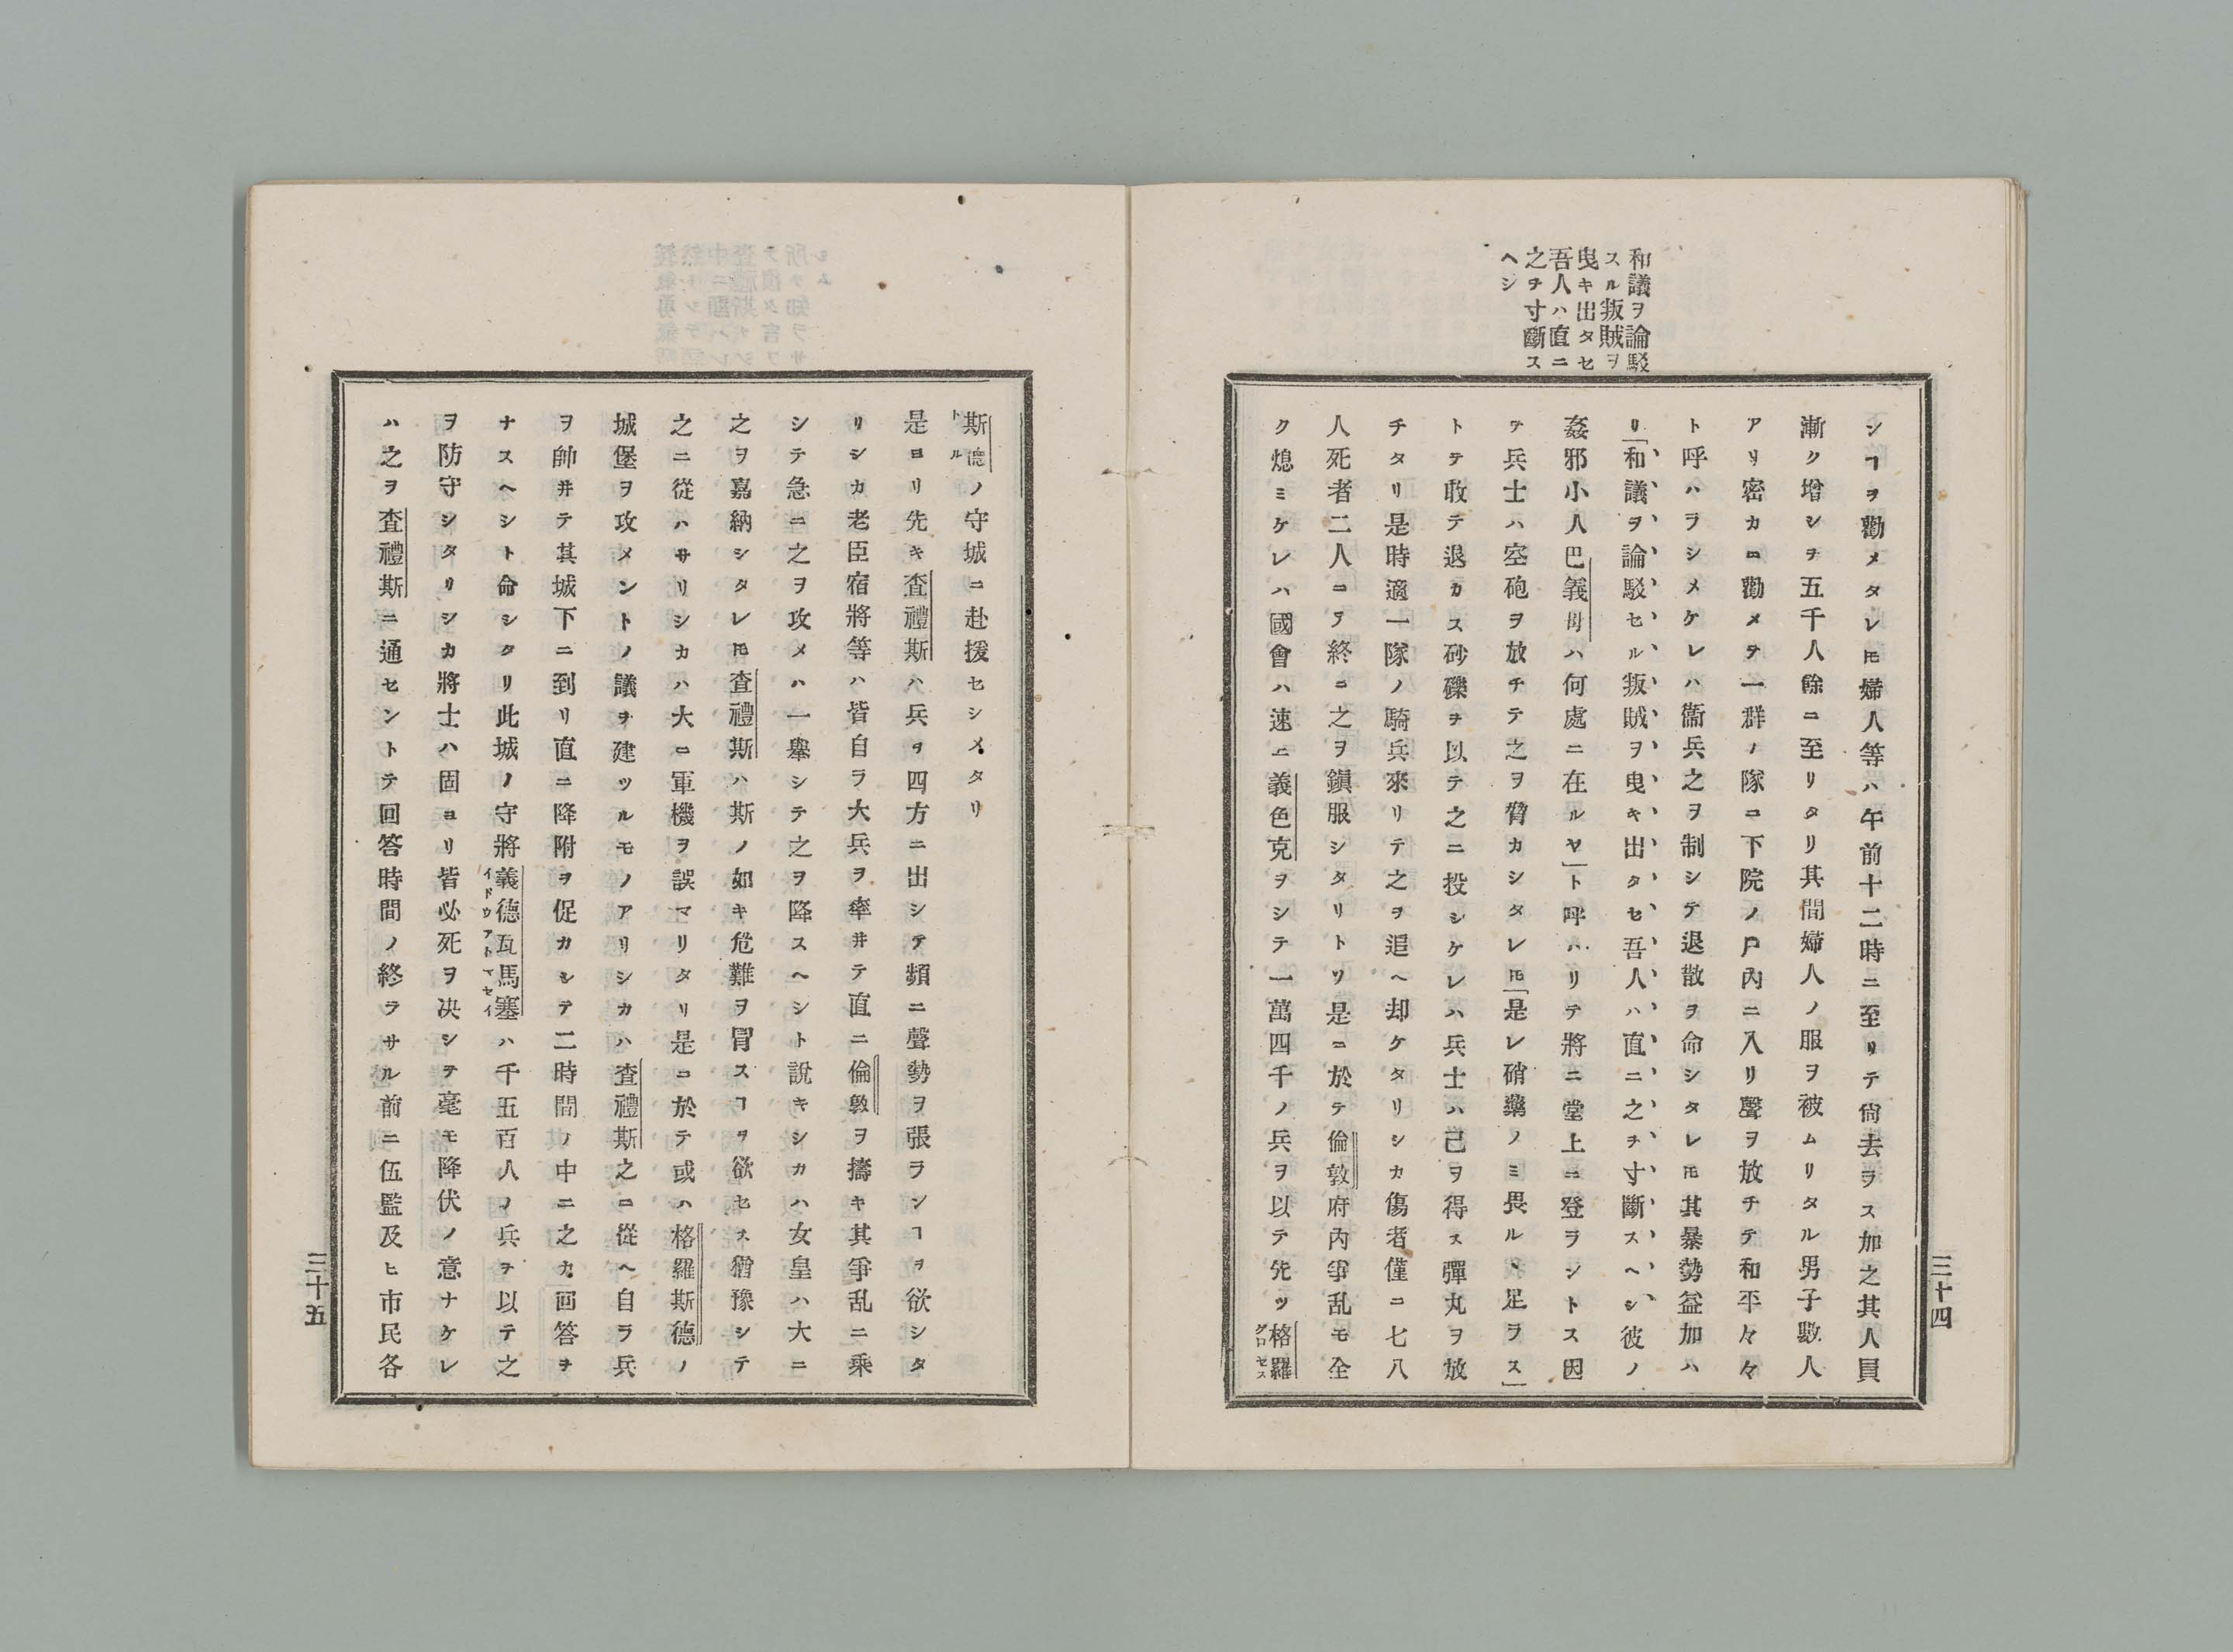 和議ヲ論駁
スル叛賊ヲ
曳キ出タセ
吾人ハ直ニ
之ヲ寸斷ス
ヘシ
シヿヲ勸メタレ𪜈婦人等ハ午前十二時ニ至リテ尙去ヲス加之其人員
漸ク增シヲ五千人餘ニ至リタリ其間婦人ノ服ヲ被ムリタル男子數人
アリ密カニ勸メテ一群ノ隊ニ下院ノ戸內ニ入リ聲ヲ放チテ和平々々
ト呼ハラシメケレハ衞兵之ヲ制シテ退散ヲ命シタレ𪜈其暴勢益加ハ
リ「和議ヲ論駁セル叛賊ヲ曳キ出タセ吾人ハ直ニ之チ寸斷スヘシ彼ノ
姦邪小人巴義母ハ何處ニ在ルヤ」ト呼ハリテ將ニ堂上ニ登ヲシトス因
テ兵士ハ空砲ヲ放チテ之ヲ脅カシタレ𪜈「是レ硝藥ノミ畏ルヽ足ヲス」
トテ敢テ退カス砂礫ヲ以テ之ニ投シケレハ兵士ハ己ヲ得ス彈丸ヲ放
チタリ是時適一隊ノ騎兵來リテ之ヲ追ヘ却ケタリシカ傷者僅ニ七八
人死者二人ニヲ終ニ之ヲ鎭服シタリトソ是ニ於テ倫敦府內爭乱モ全
ク熄ミケレハ國會ハ速ニ義色克ヲシテ一萬四千ノ兵ヲ以テ先ツ格羅
グロセス
三十四
斯德ノ守城ニ赴援セシメタリ
トル
是ヨリ先キ査禮斯ハ兵ヲ四方ニ出シテ頻ニ聲勢ヲ張ランヿヲ欲シタ
リシカ老臣宿將等ハ皆自ラ大兵ヲ率井テ直ニ倫敦ヲ擣キ其爭乱ニ乘
シテ急ニ之ヲ攻メハ一擧シテ之ヲ降スヘシト說キシカハ女皇ハ大ニ
之ヲ嘉納シタレ𪜈査禮斯ハ斯ノ如キ危難ヲ冒スヿヲ欲セス猶豫シテ
之ニ從ハサリシカハ大ニ軍機ヲ誤マリタリ是ニ於テ或ハ格羅斯德ノ
城堡ヲ攻メントノ議ヲ建ツルモノアリシカハ査禮斯之ニ從ヘ自ラ兵
ヲ帥井テ其城下ニ到リ直ニ降附ヲ促カシテ二時間ノ中ニ之カ回答ヲ
ナスヘシト命シタリ此城ノ守將義德瓦馬塞ハ千五百人ノ兵ヲ以テ之
イドワアトマセイ
ヲ防守シタリシカ將士ハ固ヨリ皆必死ヲ决シテ毫モ降伏ノ意ナケレ
ハ之ヲ査禮斯ニ通セントテ回答時間ノ終ラサル前ニ伍監及ヒ市民各
三十五